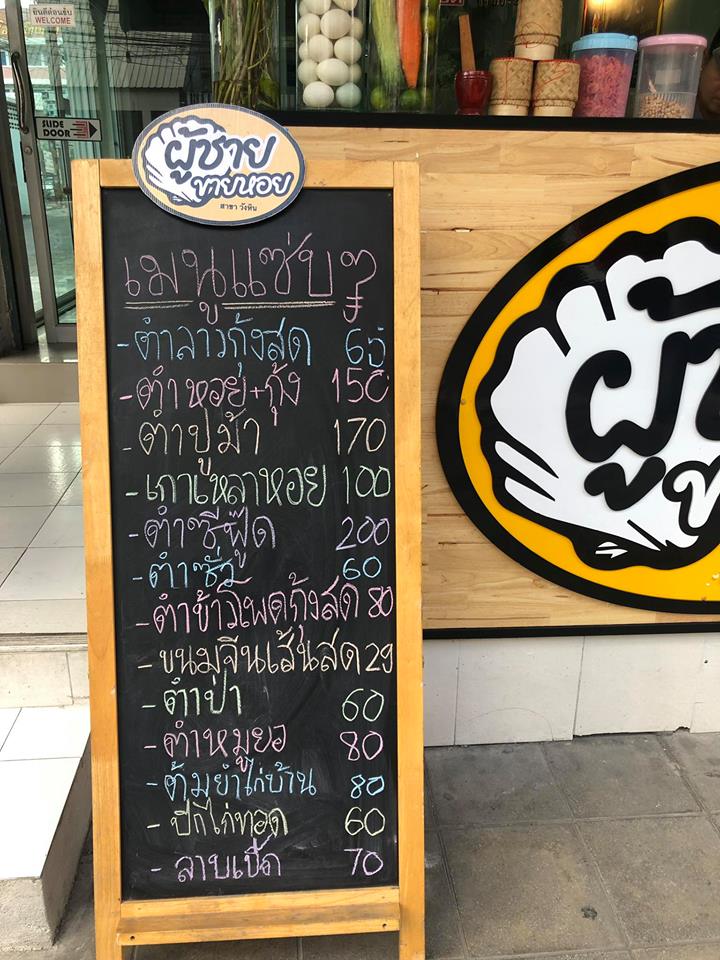 ยินดีต้อนรับ
WELCOME
SLIDE
DOOR
ผู้ชาย
ขายหอย
สาขา วังหิน
เมนูแซ่บๆ
-ตำลาวกุ้งสด 65
-ตำหอย+กุ้ง 150
-ตำปูม้า 170
-เกาเหลาหอย 100
-ตำซีฟู๊ด 200
-ตำซั่ว 60
-ตำข้าวโพดกุ้งสด 80
-ขนมจีนเส้นสด 29
-ตำป่า 60
-ตำหมูยอ 80
-ต้มยำไก่บ้าน 80
-ปีกไก่ทอด 60
-ลาบเป็ด 70